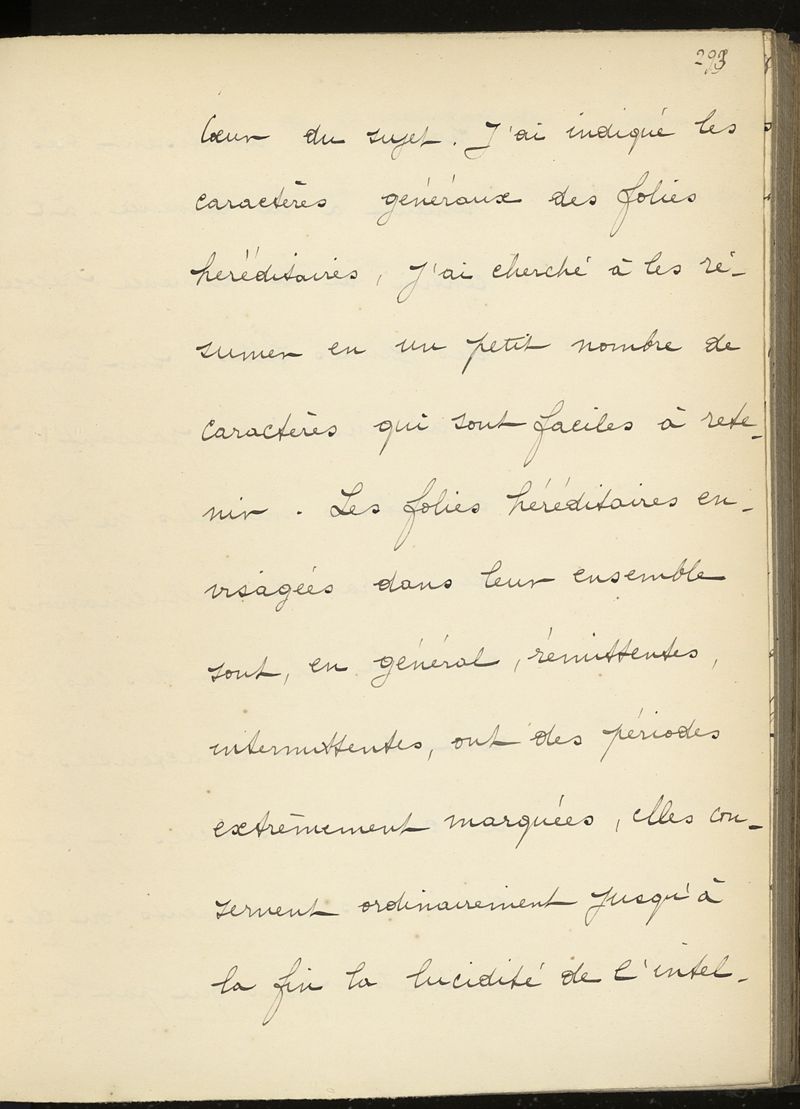 293
Cœur du sujet. J'ai indiqué les
caractères généraux des folies
héréditaires, j'ai cherché à les ré-
sumer en un petit nombre de
caractères qui sont faciles à rete-
nir. Les folies héréditaires en-
visagées dans leur ensemble
sont, en général, rémittentes,
intermittentes, ont des périodes
extrêmement marquées, elles con-
servent ordinairement jusqu'à
la fin la lucidité de l'intel-